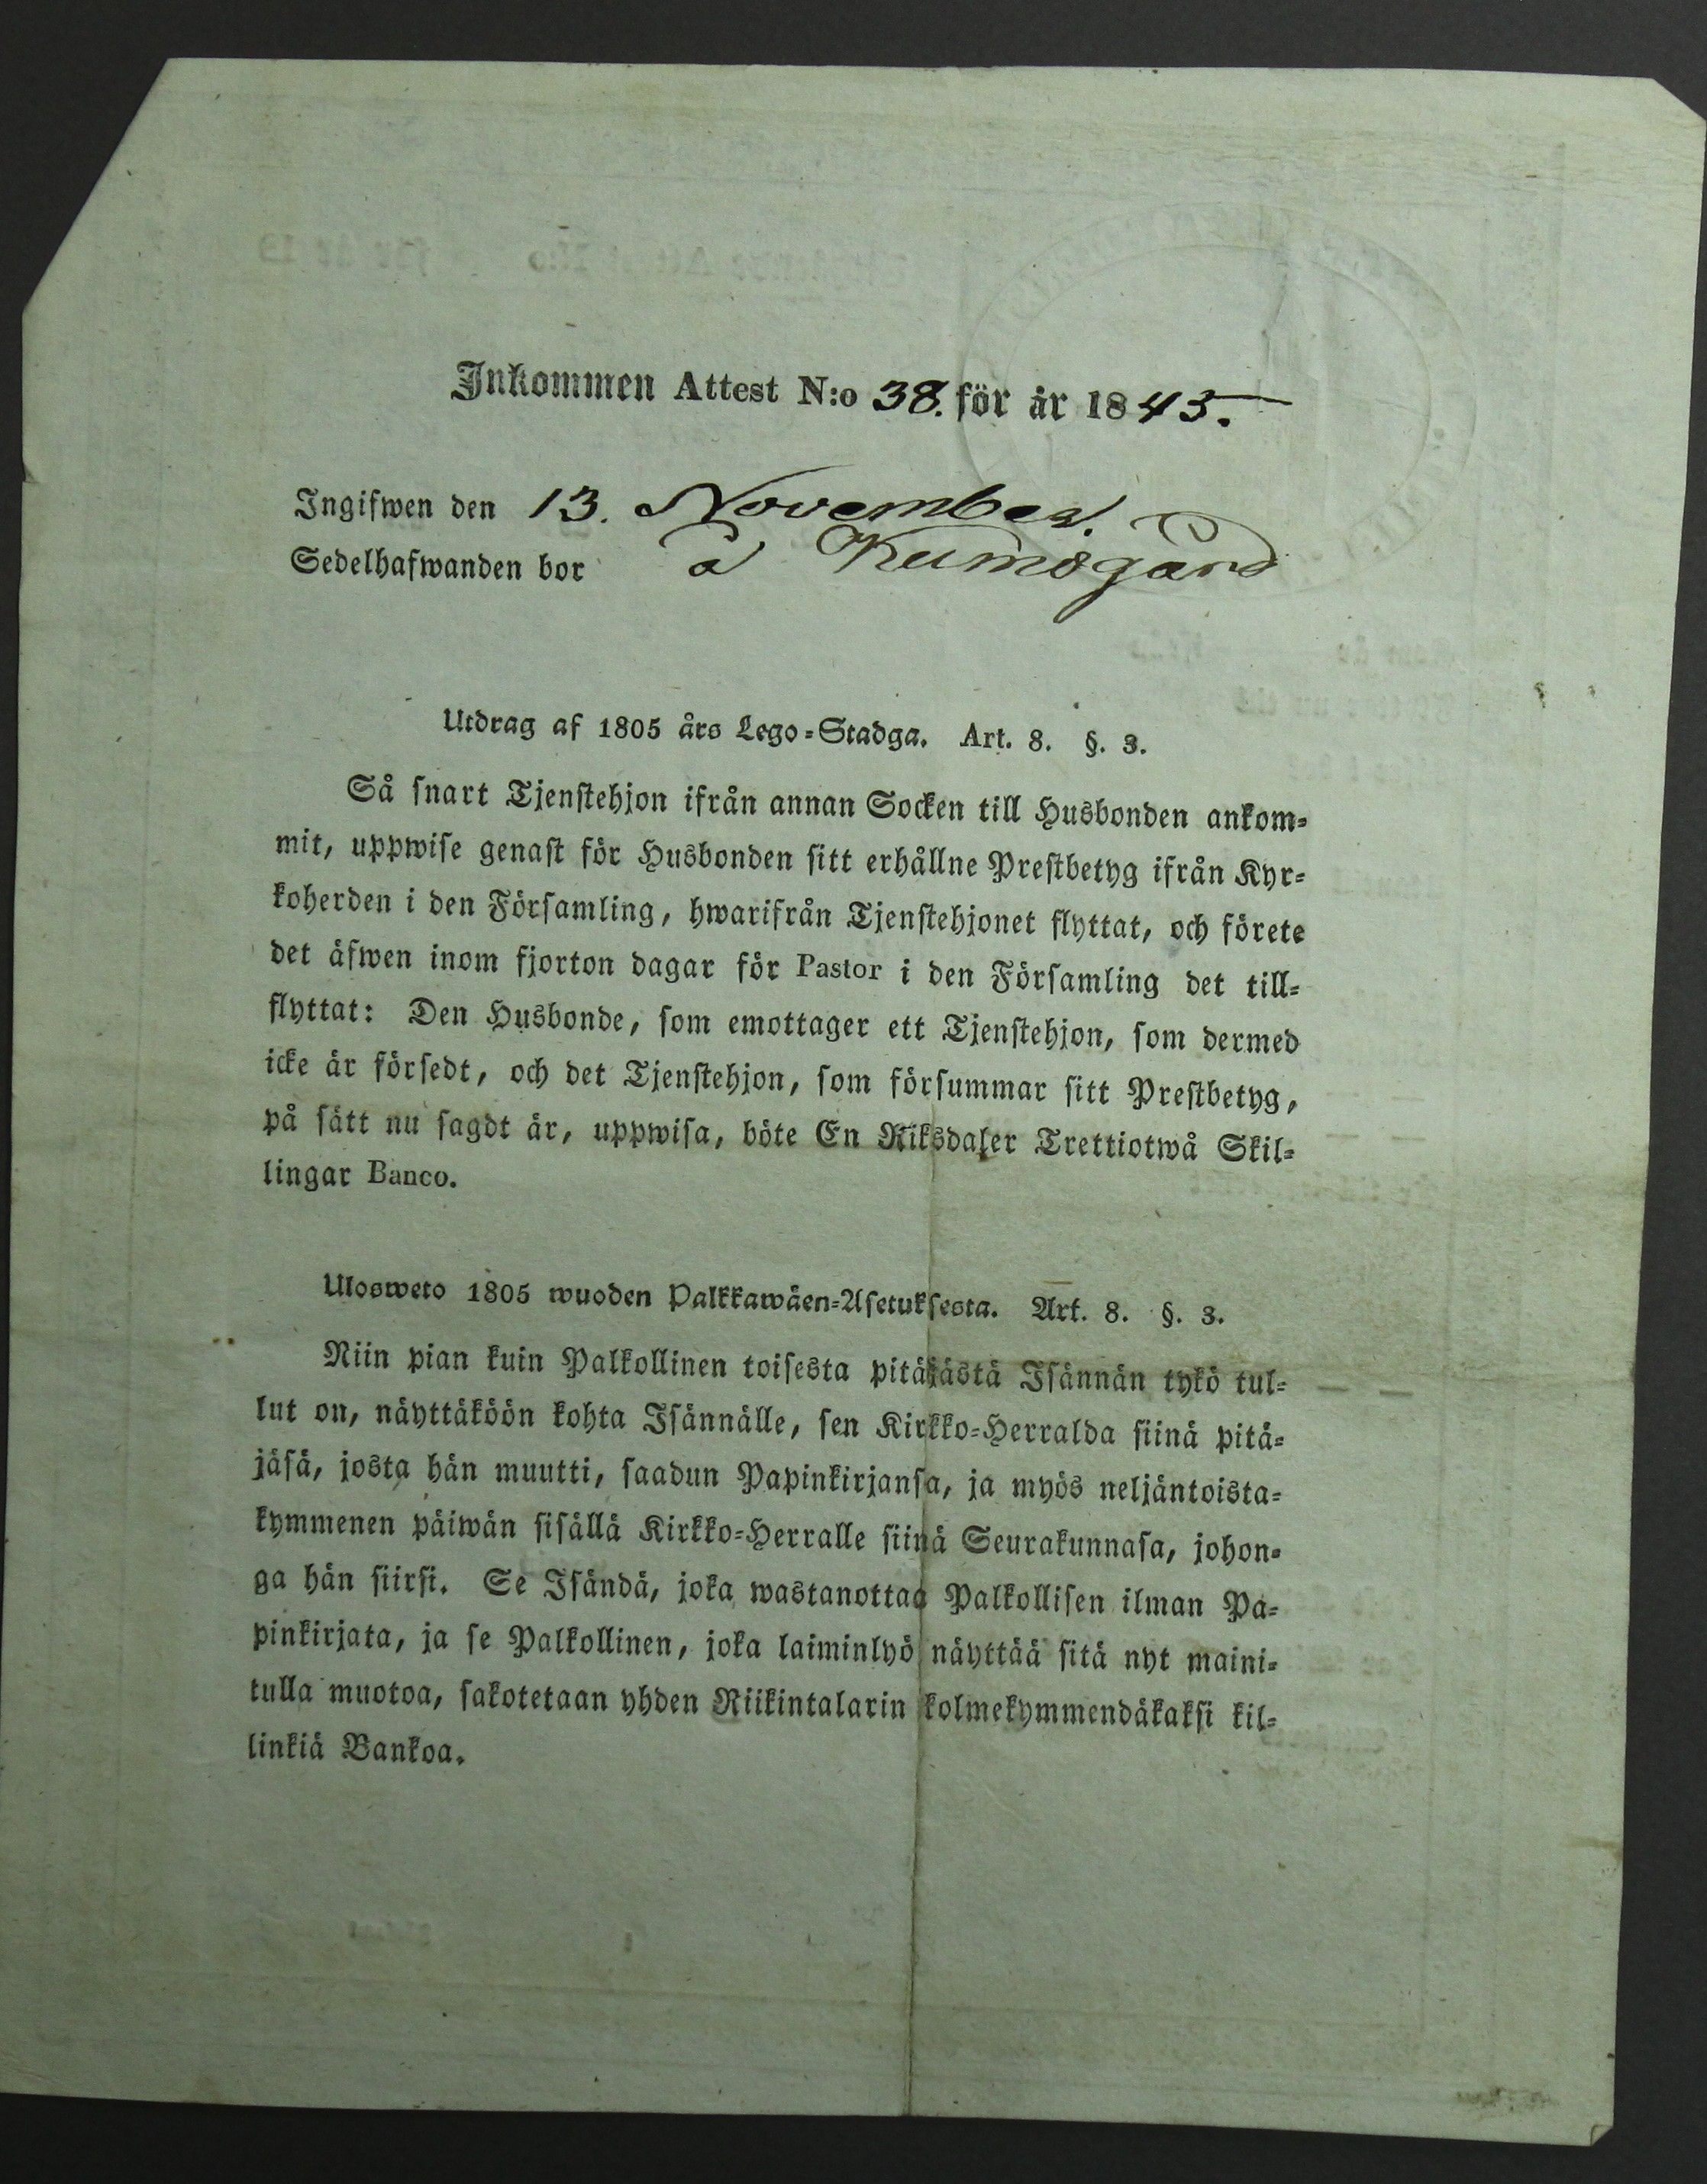 Inkommen Attest N:o 38. för år 1845.
Ingifwen den 13. November.
Sedelhafwanden bor å Kumogård
Utdrag af 1805 års Lego-Stadga. Art. 8. §. 3.
Så snart Tjenstehjon ifrån annan Socken till Husbonden ankom-
mit, uppwise genast för Husbonden sitt erhållne Prestbetyg ifrån Kyr-
koherden i den Församling, hwarifrån Tjenstehjonet flyttat, och förete
det äfwen inom fjorton dagar för Pastor i den Församling det till-
flyttat: Den Husbonde, som emottager ett Tjenstehjon, som dermed
icke är försedt, och det Tjenstehjon, som försummar sitt Prestbetyg,
på sätt nu sagdt är, uppwisa, böte En Riksdaler Trettiotwå Skil-
lingar Banco.
Ulosweto 1805 wuoden Palkkawäen-Asetuksesta. Art. 8. §. 3.
Niin pian kuin Palkollinen toisesta pitäjästä Isännän tykö tul-
lut on, näyttäköön kohta Isännälle, sen Kirkko-Herralda siinä pitä-
jäsä, josta hän muutti, saadun Papinkirjansa, ja myös neljäntoista-
kymmenen päiwän sisällä Kirkko-Herralle siinä Seurakunnasa, johon-
ga hän siirsi. Se Isändä, joka wastanottaa Palkollisen ilman Pa-
pinkirjata, ja se Palkollinen, joka laiminlyö näyttää sitä nyt maini-
tulla muotoa, sakotetaan yhden Riikintalarin kolmekymmendäkaksi kil-
linkiä Bankoa.